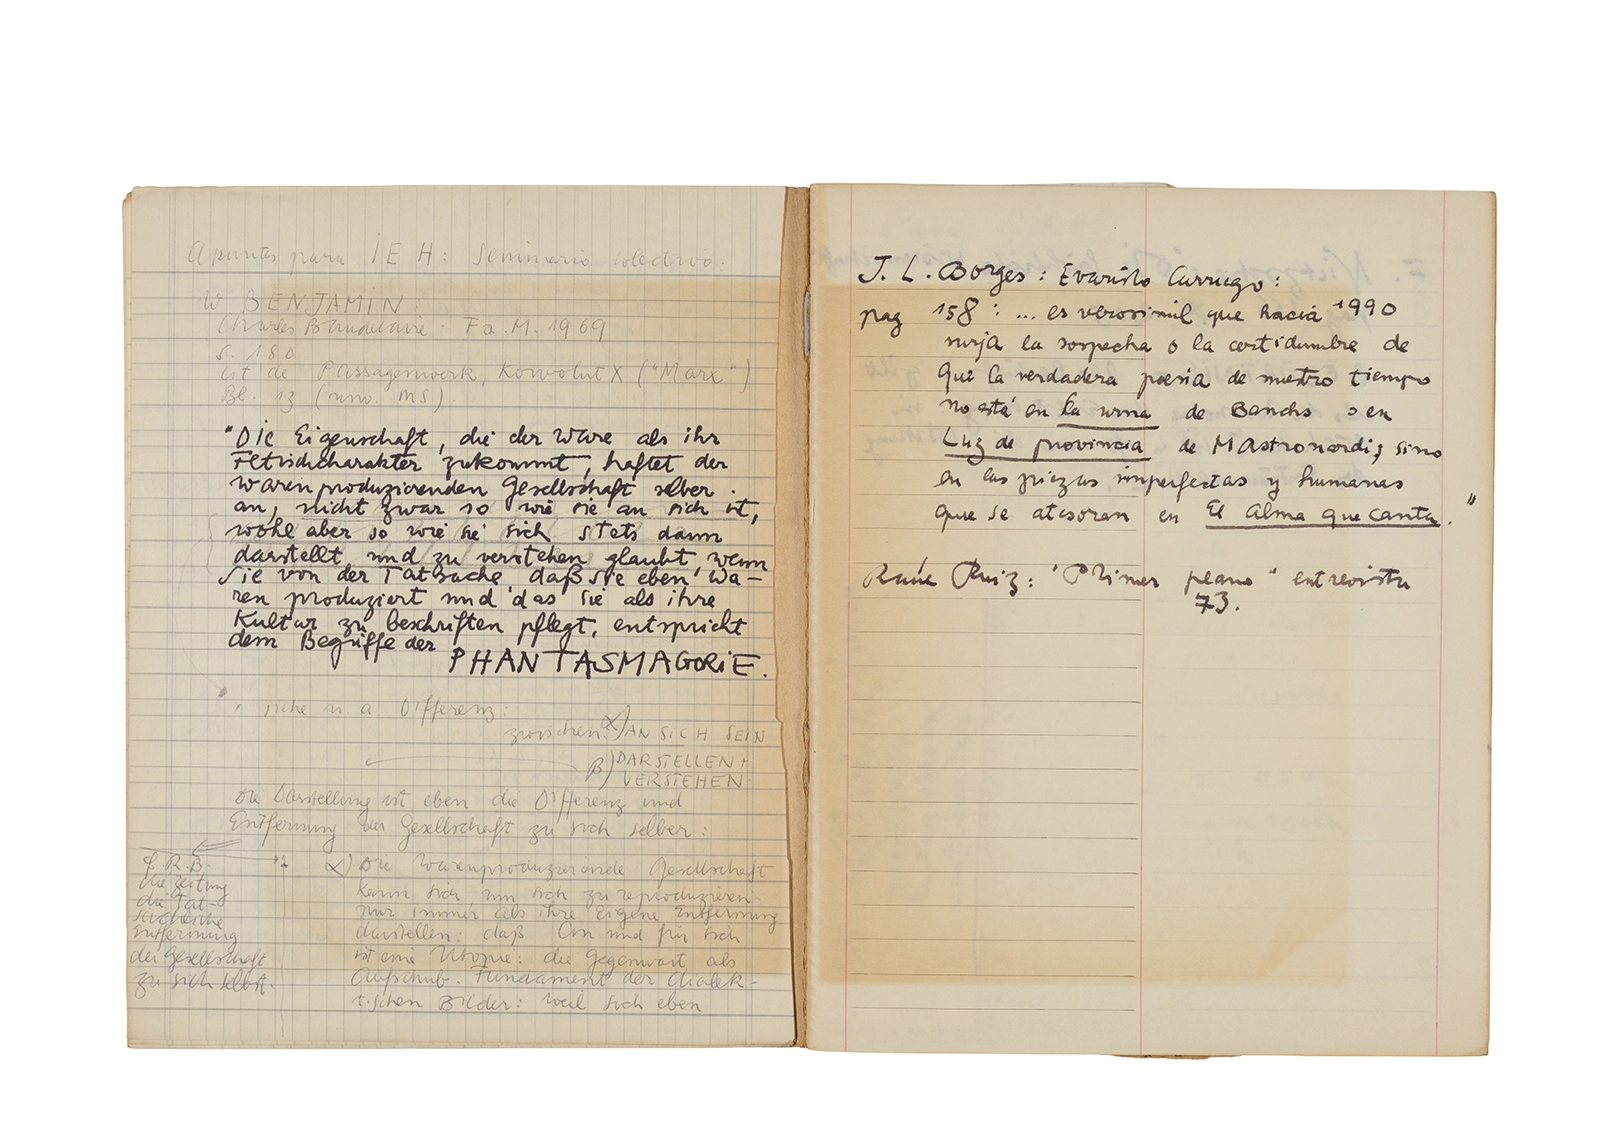 Apuntes para IEH: Seminario colectivo.
W BENJAMIN:
Charles Baudelaire. F a. M. 1969
S. 180
ist de Passagenwerk, Konvolut X ("Marx")
Bl. 13 (unv. MS).
"Die Eigenschaft, die der Ware als ihr
Fetischcharakter zukommt, haftet der
warenproduzierenden Gesellschaft selber
an, nicht zwar so wie sie an sich ist,
wohl aber so wie sie sich stets dann
darstellt und zu verstehen glaubt, wenn
sie von der Tatsache, daß sie eben Wa-
ren produziert und das sie als ihre
Kultur zu beschriften pflegt, entspricht
dem Begriffe der
PHANTASMAGORIE.
siehe u. a. Differenz:
zwischen: α) AN SICH SEIN
β) DARSTELLEN +
VERSTEHEN
die Darstellung ist eben die Differenz und
Entfernung der Gesellschaft zu sich selber:
α) Die warenproduzierende Gesellschaft
kann sich, um sich zu reproduzieren
nur immer als ihre Eigene Entfernung
darstellen: daß An und für sich
ist eine Utopie: die Gegenwart als
Aufschub. Fundament der dialek-
tischen Bilder: weil sich eben
f. R. B.
die Zeitung
die Tat-
sächliche
Entfernung
der Gesellschaft
zu sich selbst.
J. L. Borges: Evaristo Carriego:
pag 158: ... es verosimil que hacia 1990
surja la sospecha o la certidumbre de
que la verdadera poesia de nuestro tiempo
no está en La urna de Banchs o en
Luz de provincia de MAstronardi; sino
en las piezas imperfectas y humanas
que se atesoran en El alma que canta."
Raúl Ruiz: "Primer plano" entrevista
73.